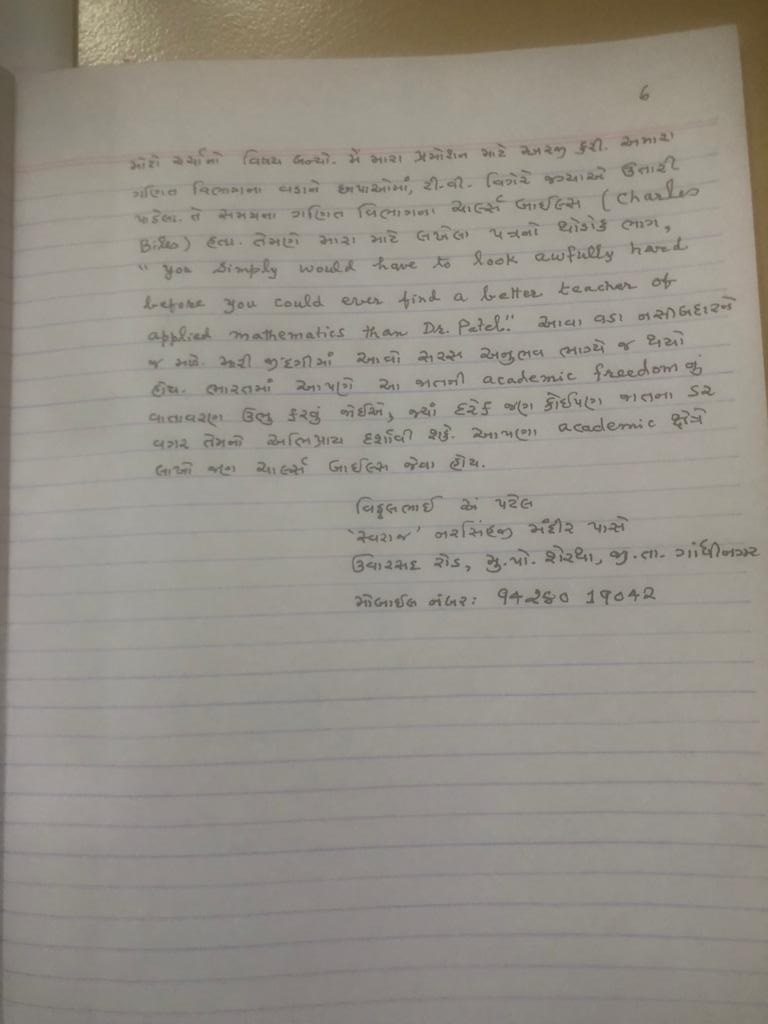 6
મોટો ચર્ચાનો વિષય બન્યો. મેં મારા પ્રમોશન માટે અરજી કરી. અમારા
ગણિત વિભાગના વડાને છાપાઓમાં, ટી.વી. વિગેરે જગ્યાએ ઉતારી
પાડેલા. તે સમયના ગણિત વિભાગના ચાર્લ્સ બાઈલ્સ (Charles
Biles) હતા. તેમણે મારા માટે લખેલા પત્રનો થોડોક ભાગ,
" You simply would have to look awfully hard
before you could ever find a better teacher of
applied mathematics than Dr. Patel." આવા વડા નસીબદારને
જ મળે. મારી જીંદગીમાં આવો સરસ અનુભવ ભાગ્યે જ થયો
હોય. ભારતમાં આપણે આ જાતની academic freedom નું
વાતાવરણ ઉભુ કરવું જોઈએ, જ્યાં દરેક જણ કોઈપણ જાતના ડર
વગર તેમનો અભિપ્રાય દર્શાવી શકે. આપણા academic ક્ષેત્રે
લાખો જણ ચાર્લ્સ બાઈલ્સ જેવા હોય.
વિઠ્ઠલભાઈ અં પટેલ
'સ્વરાજ' નરસિંહજી મંદીર પાસે
ઉવારસદ રોડ, મુ.પો. શેરથા, જી.તા. ગાંધીનગર
મોબાઈલ નંબર: 94280 19042